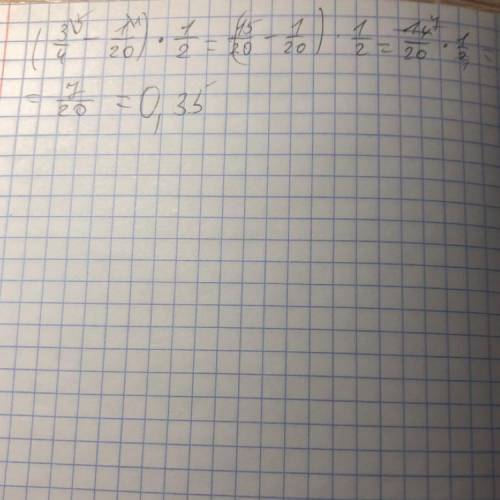 ( 3\5 / 4 - 1\1 / 20 ) · 1/2 = ( 15/20 - 1/20 ) · 1/2 = 14 7 / 20 · 1/2 =
= 7/20 = 0,35